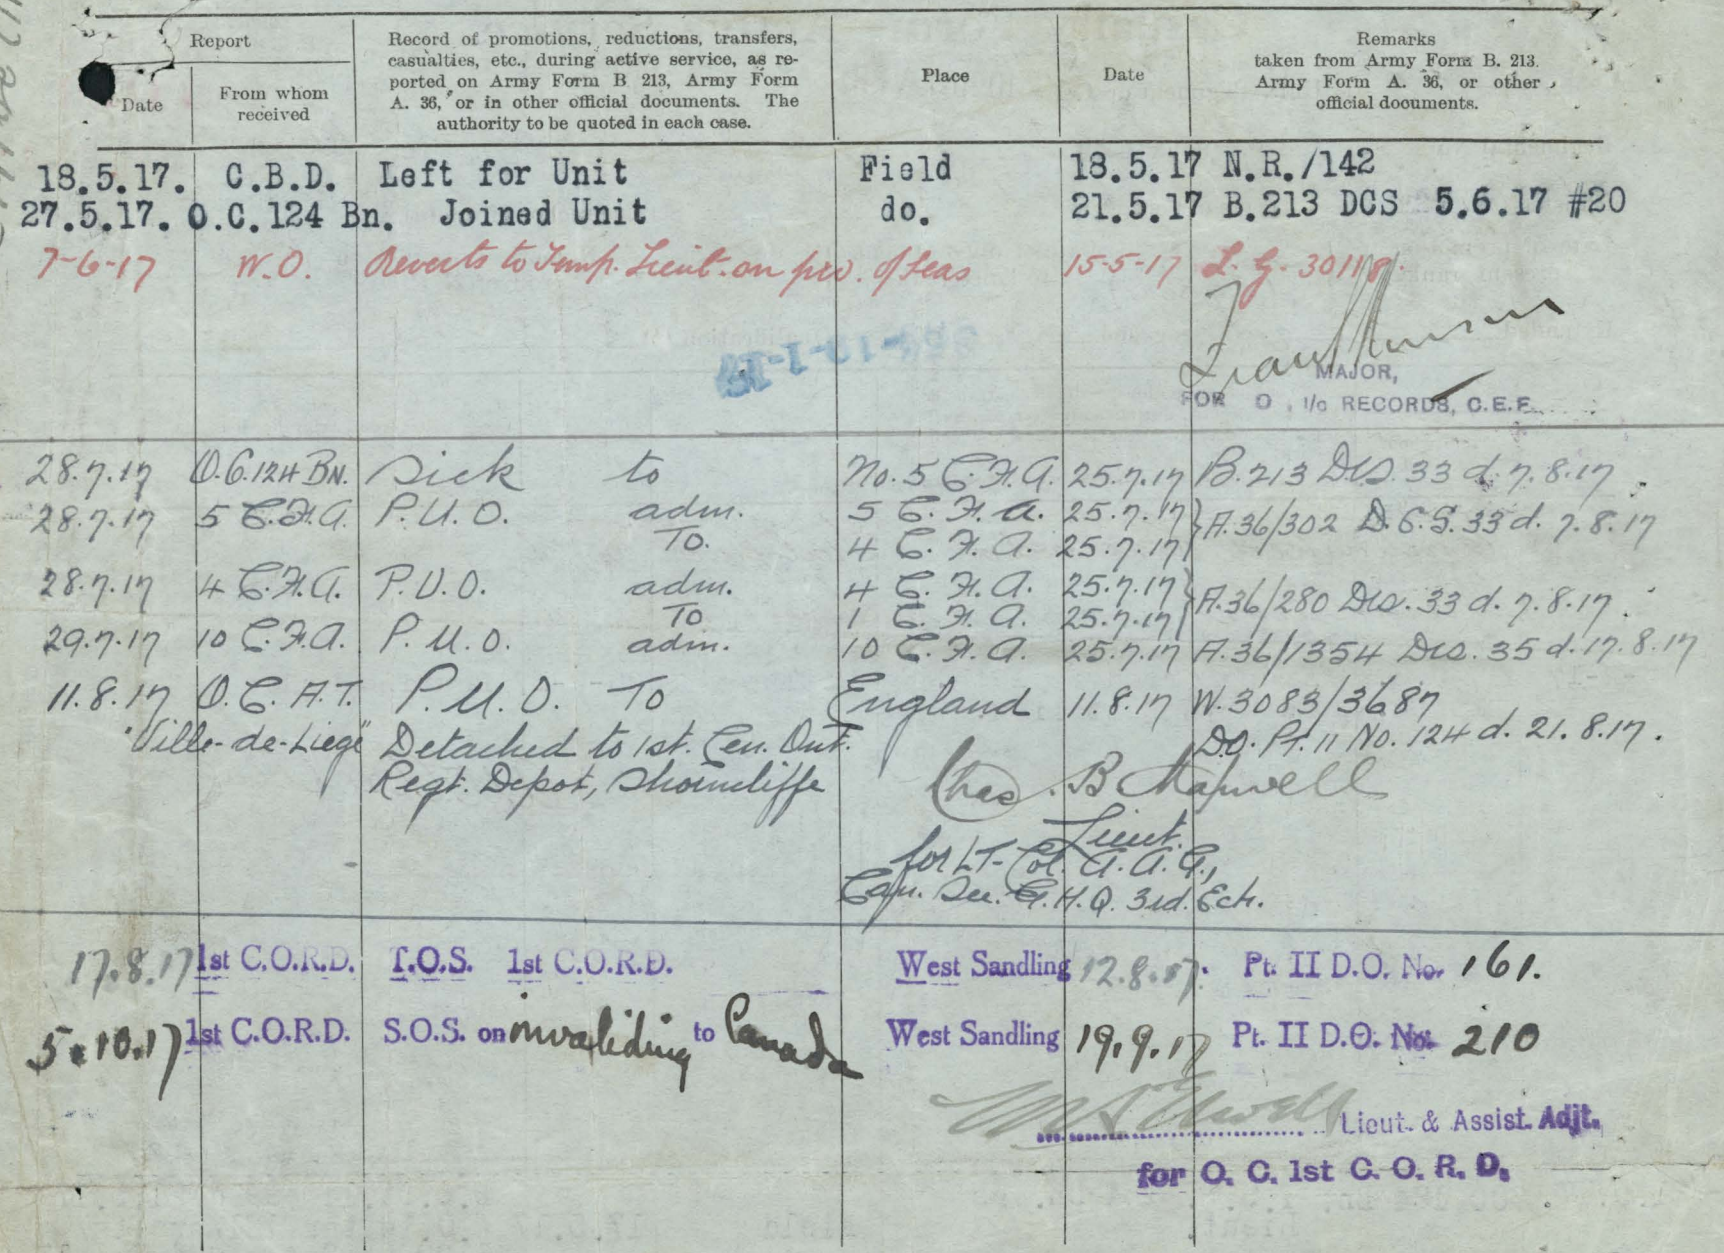 Report
Date
From whom
received
Record of promotions, reductions, transfers,
casualties, etc., during active service, as re-
ported on Army Form B 213, Army Form
A. 36, or in other official documents. The
authority to be quoted in each case.
Place
Date
Remarks
taken from Army Form B. 213.
Army Form A. 36, or other
official documents.
18.5.17. C.B.D. Left for Unit Field 18.5.17 N.R./142
27.5.17. O.C.124 Bn. Joined Unit do. 21.5.17 B.213 DCS 5.6.17 #20
7-6-17 W.O. Reverts to Temp. Lieut. on pro. of Seas 15-5-17 L.G. 30118.
MAJOR,
FOR O. i/c RECORDS, C.E.F.
28.7.17 O.C.124 BN. Sick to No. 5 C.F.A. 25.7.17 B.213 DCS. 33 d. 7.8.17
28.7.17 5 C.F.A. P.U.O. adm. 5 C.F.A. 25.7.17 } A.36/302 D.C.S. 33 d. 7.8.17
To. 4 C.F.A. 25.7.17
28.7.17 4 C.F.A. P.U.O. adm. 4 C.F.A. 25.7.17 } A.36/280 DCS. 33 d. 7.8.17.
To 1 C.F.A. 25.7.17
29.7.17 10 C.F.A. P.U.O. adm. 10 C.F.A. 25.7.17 A.36/1354 DCS. 35 d. 17.8.17
11.8.17 O.C. A.T. P.U.O. To England 11.8.17 W.3083/3687
"Ville-de-Liege" Detached to 1st. Cen. Ont. D.O. Pt. 11 No. 124 d. 21.8.17.
Regt. Depot, Shorncliffe Chas. B Maxwell
Lieut.
for LT-Col. A.A.G.,
Can. Sec. G.H.Q. 3rd. Ech.
17.8.17 1st C.O.R.D. T.O.S. 1st C.O.R.D. West Sandling 12.8.17. Pt. II D.O. No. 161.
5.10.17 1st C.O.R.D. S.O.S. on invaliding to Canada West Sandling 19.9.17 Pt. II D.O. No. 210
Lieut. & Assist. Adjt.
for O. C. 1st C. O. R. D.